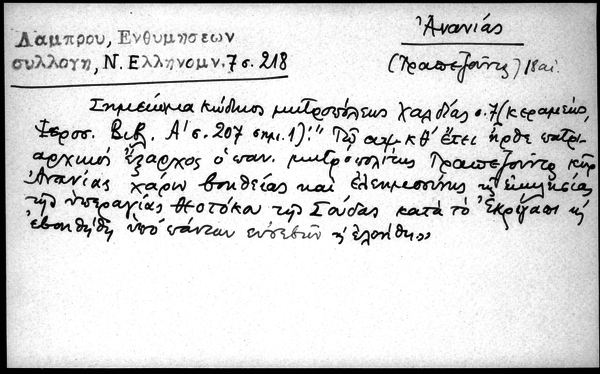 Λάμπρου, Ενθυμήσεων
συλλογή, Ν. Ελληνομν. 7 σ. 218
Ἀνανίας
(Τραπεζοῦντος) 18 αἰ.
Σημείωμα κώδικος μητροπόλεως Χαλδίας σ. 7 (Κεραμεύς,
Ἱεροσ. Βιβ. Α' σ. 207 σημ. 1): "Τῷ αψκθ' ἔτει ἦρθε πατρι-
αρχικός ἔξαρχος ὁ παν. μητροπολίτης Τραπεζοῦντος κύρ
Ἀνανίας χάριν βοηθείας καί ἐλεημοσύνης τῆς ἐκκλησίας
τῆς ὑπεραγίας Θεοτόκου τῆς Σούδας κατά τό
ἐβοηθήθη ὑπό πάντων εὐσεβῶν κ ἐλεήθη»